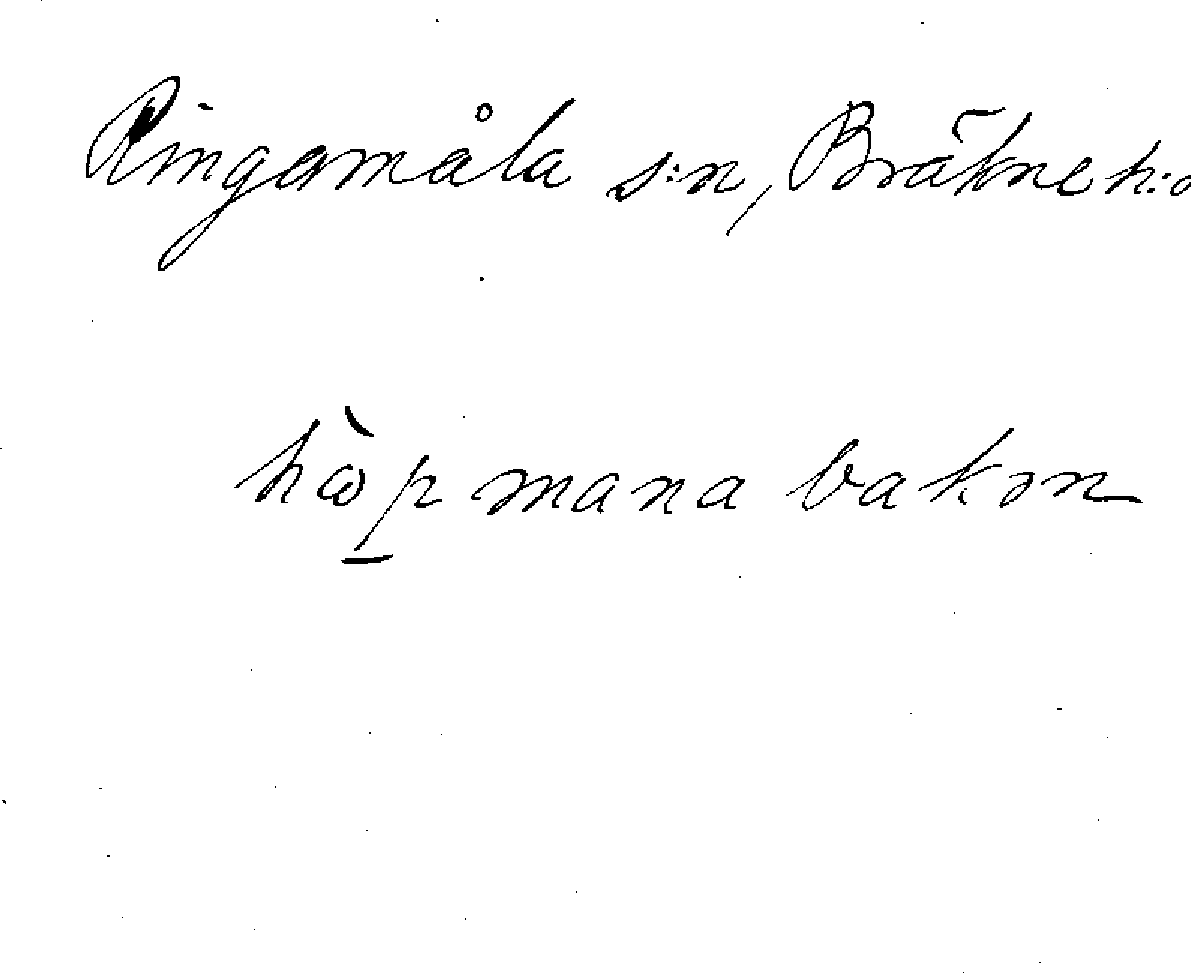 Ringamåla s:n, Bräkne h:d
hàpmana bakm